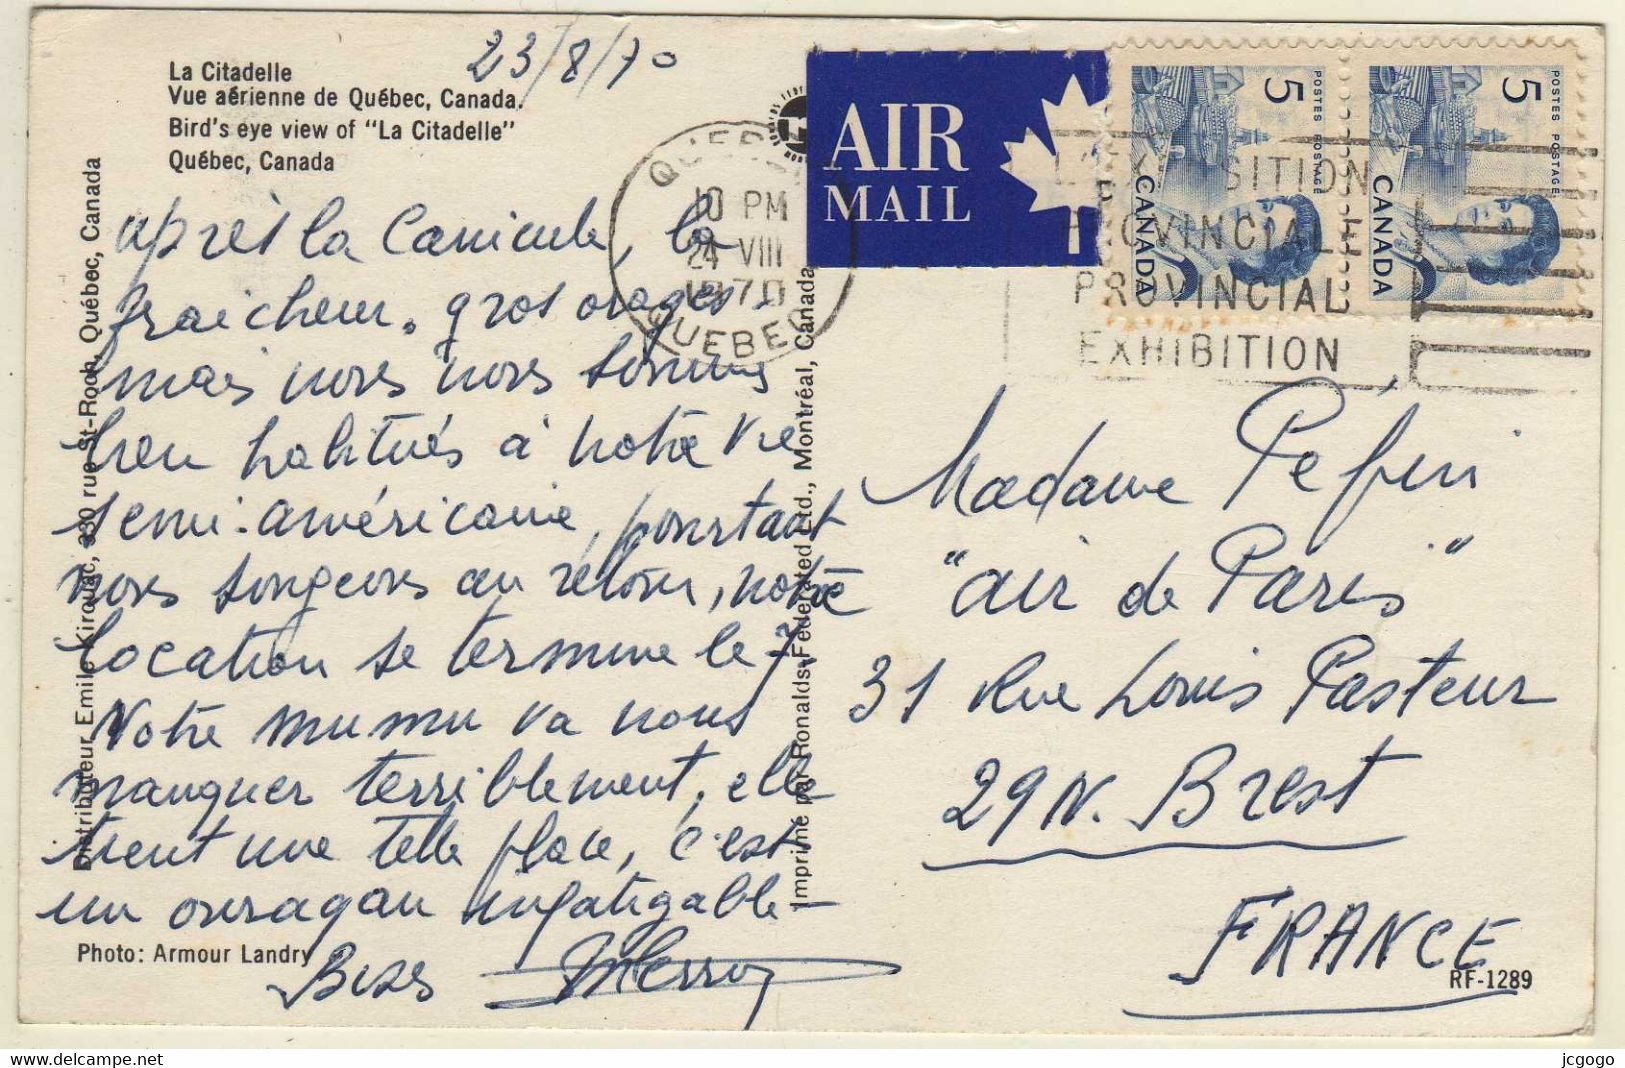 La Citadelle
Vue aérienne de Québec, Canada.
Bird's eye view of "La Citadelle"
Québec, Canada
23/8/70
AIR
MAIL
QUEBEC
10 PM
24 VIII
1970
QUEBEC
L'EXPOSITION
PROVINCIALE
PROVINCIAL
EXHIBITION
5
POSTES POSTAGE
CANADA
5
POSTES POSTAGE
CANADA
après la Canicule, la
fraicheur. gros orages -
mais nous nous sommes
bien habitués à notre vie
semi-américaine, pourtant
nous songeons au retour, notre
location se termine le 7.
Notre mumu va nous
manquer terriblement, elle
tient une telle place, c'est
un ouragan infatigable -
Bises
Madame Pefin
"air de Paris"
31 Rue Louis Pasteur
29N. Brest
FRANCE
Distributeur Emile Kirouac, 330 rue St-Roch, Québec, Canada
Imprimé par Ronalds-Federated Ltd., Montréal, Canada
Photo: Armour Landry
RF-1289
delcampe.net
jcgogo